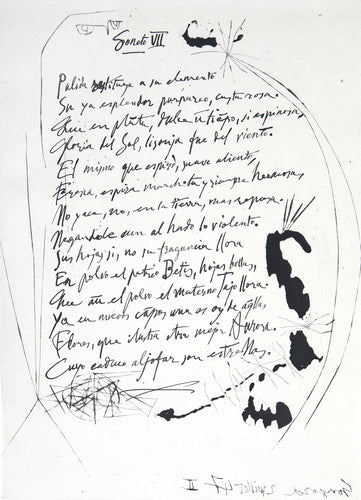 Soneto VII
Palida restituye a su elemento
Su ya esplendor purpureo, casta rosa.
Que en planta, dulce un tiempo, si espinosa,
Gloria del Sol, lisonja fue del viento.
El mismo que espiró, suave aliento,
Fresca, espira marchita y siempre hermosa,
No yace, no, en la tierra, mas reposa.
Negandole aun el hado lo violento.
Sus hojas si, no su fragancia llora
En polvo el patrio Betis, hojas bellas,
Que en polvo el materno Tajo
Ya en nuevos campos una es oy de
Flores, que ilustra otra mejor Aurora.
Cuyo caduco aljofar son estrellas.
Gongora juillet 47 II